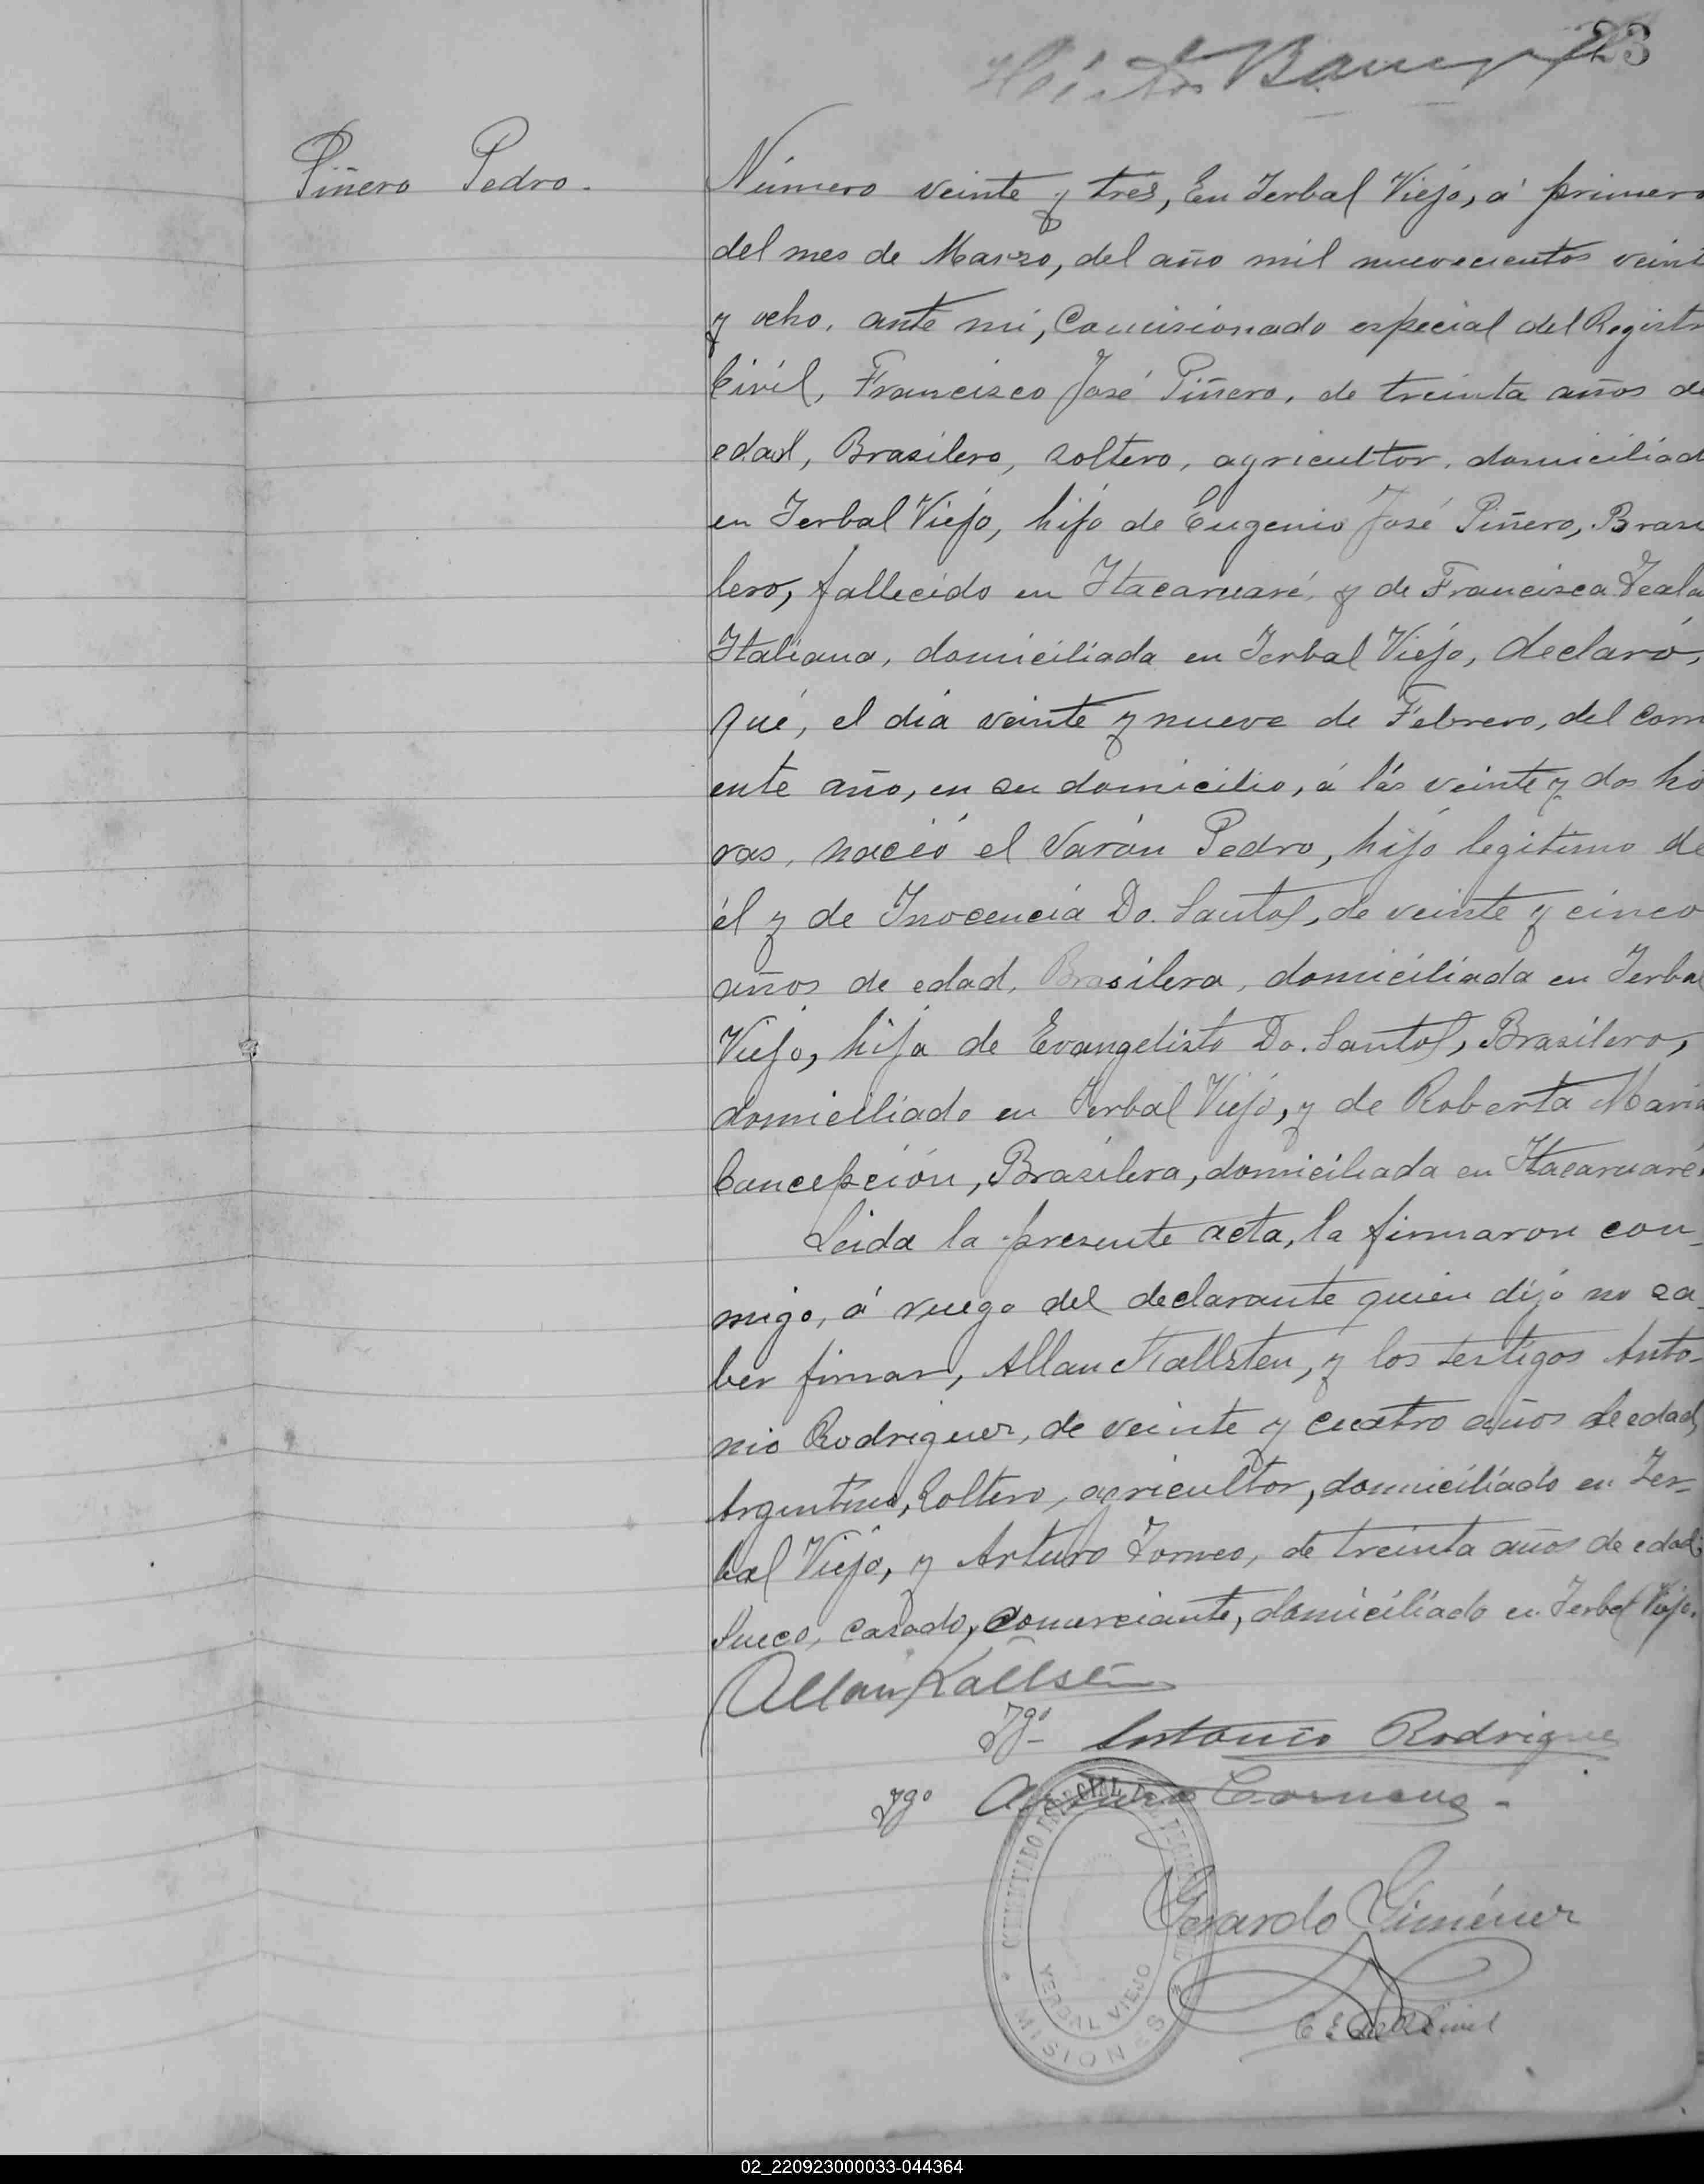 23
Piñero Pedro.
Número veinte y tres, En Yerbal Viejo, á primero
del mes de Marzo, del año mil nuevecientos veint
y ocho, ante mi, Comisionado especial del Registr
Civil, Francisco José Piñero, de treinta años de
edad, Brasilero, soltero, agricultor, domiciliad
en Yerbal Viejo, hijo de Eugenio José Piñero, Brasi
lero, fallecido en Itacaruaré, y de Francisca
Italiana, domiciliada en Yerbal Viejo, declaró,
qué, el dia veinte y nueve de Febrero, del corri
ente año, en su domicilio, á lás veinte y dos ho
ras, nació el Varón Pedro, hijo legitimo de
él y de Inocencia Do. Santos, de veinte y cinco
años de edad, Brasilera, domiciliada en Yerbal
Viejo, hija de Evangelisto Do. Santos, Brasilero,
domiciliado en Yerbal Viejo, y de Roberta Maria
Concepción, Brasilera, domiciliada en Itacaruaré.
Leida la presente acta, la firmaron con_
migo, á ruego del declarante quien dijo no sa_
ber firmar, Allan Kallsten, y los testigos Anto-
nio Rodriguez, de veinte y cuatro años de edad,
Argentino, Soltero, agricultor, domiciliado en Yer-
bal Viejo, y Arturo Torneo, de treinta años de edad,
Sueco, casado, comerciante, domiciliado en Yerbal Viejo.
Allan Kallsten
Tgo- Antonio Rodrigue
Tgo Arturo
COMISIONADO ESPECIAL DEL REGISTRO
YERBAL VIEJO
MISIONES
Gerardo Giménez
C E del R Civil
02_220923000033-044364